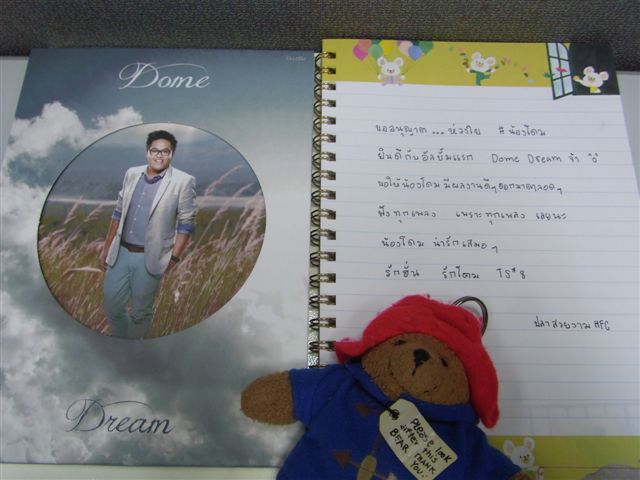 Dome
Dream
ขออนุญาต... ห่วงใย # น้องโดม
ยินดีกับอัลบั้มแรก Dome Dream จ้า
ขอให้น้องโดมมีผลงานดีๆออกมาตลอดๆ
ฟังทุกเพลง เพราะทุกเพลง เลยนะ
น้องโดม น่ารักเสมอๆ
รักฮั่น รักโดม TS#8
ปลาสวยงาม HFC
PLEASE LOOK
after this
BEAR THANK
YOU.